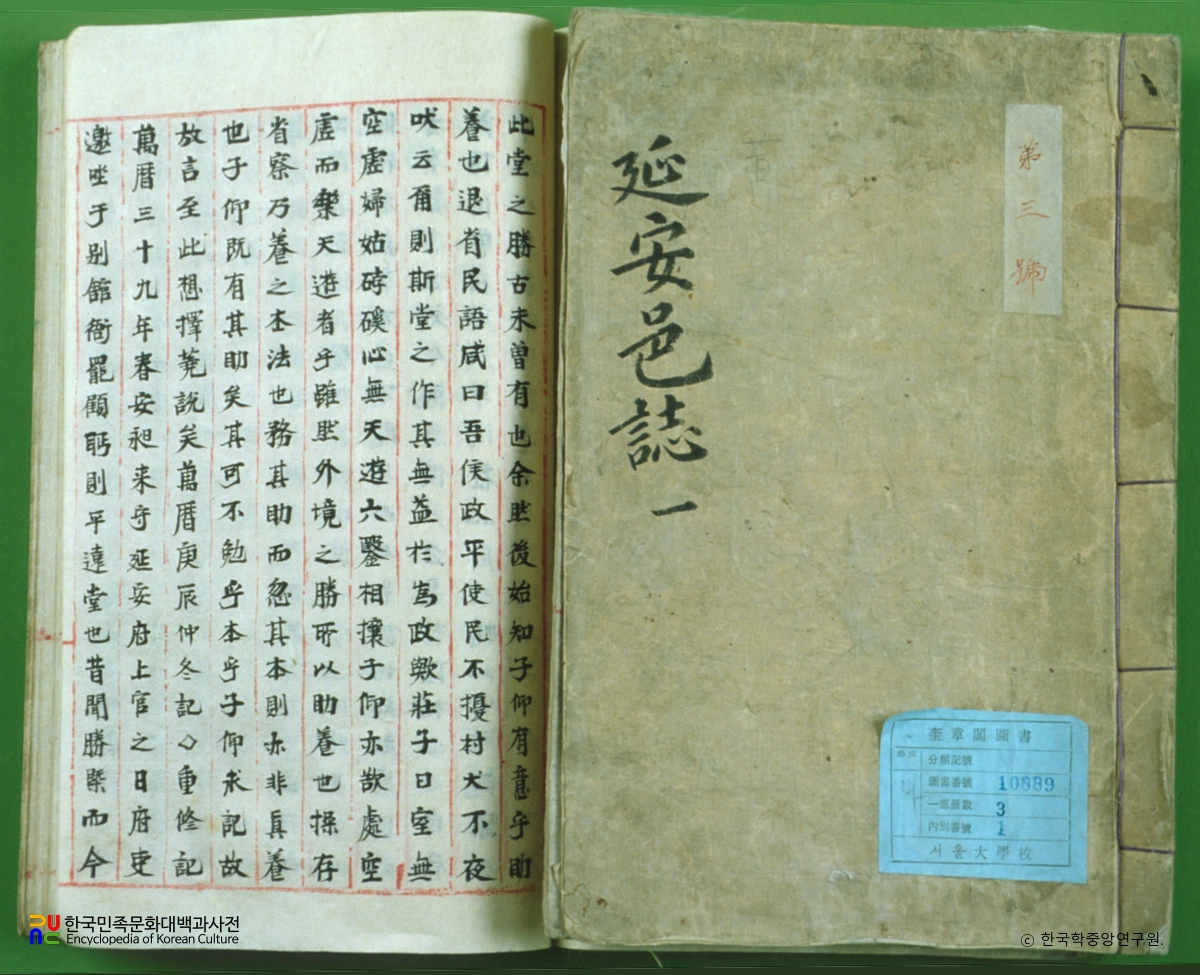 此堂之勝古未曾有也余然後始知子仰有意乎助
養也退省民語咸曰吾侯政平使民不擾村犬不夜
吠云爾則斯堂之作其無益於爲政歟莊子曰室無
空虛婦姑硚磎心無天遊六鑿相攘子仰亦欲處空
虛而樂天遊者乎雖然外境之勝所以助養也操存
省察乃養之本法也務其助而忽其本則亦非眞養
也子仰旣有其助矣其可不勉乎本乎子仰求記故
故言至此想擇蒐說矣萬曆庚辰仲冬記◇重修記
萬曆三十九年春安昶來守延安府上官之日府吏
邀坐于別館衙罷顧眄則平遠堂也昔聞勝槩而今
延安邑誌 一
第三號
奎章閣圖書
部門
分類記號
圖書番號 10889
一部册數 3
內別番號 1
서울大學校
한국민족문화대백과사전
Encyclopedia of Korean Culture
ⓒ 한국학중앙연구원.